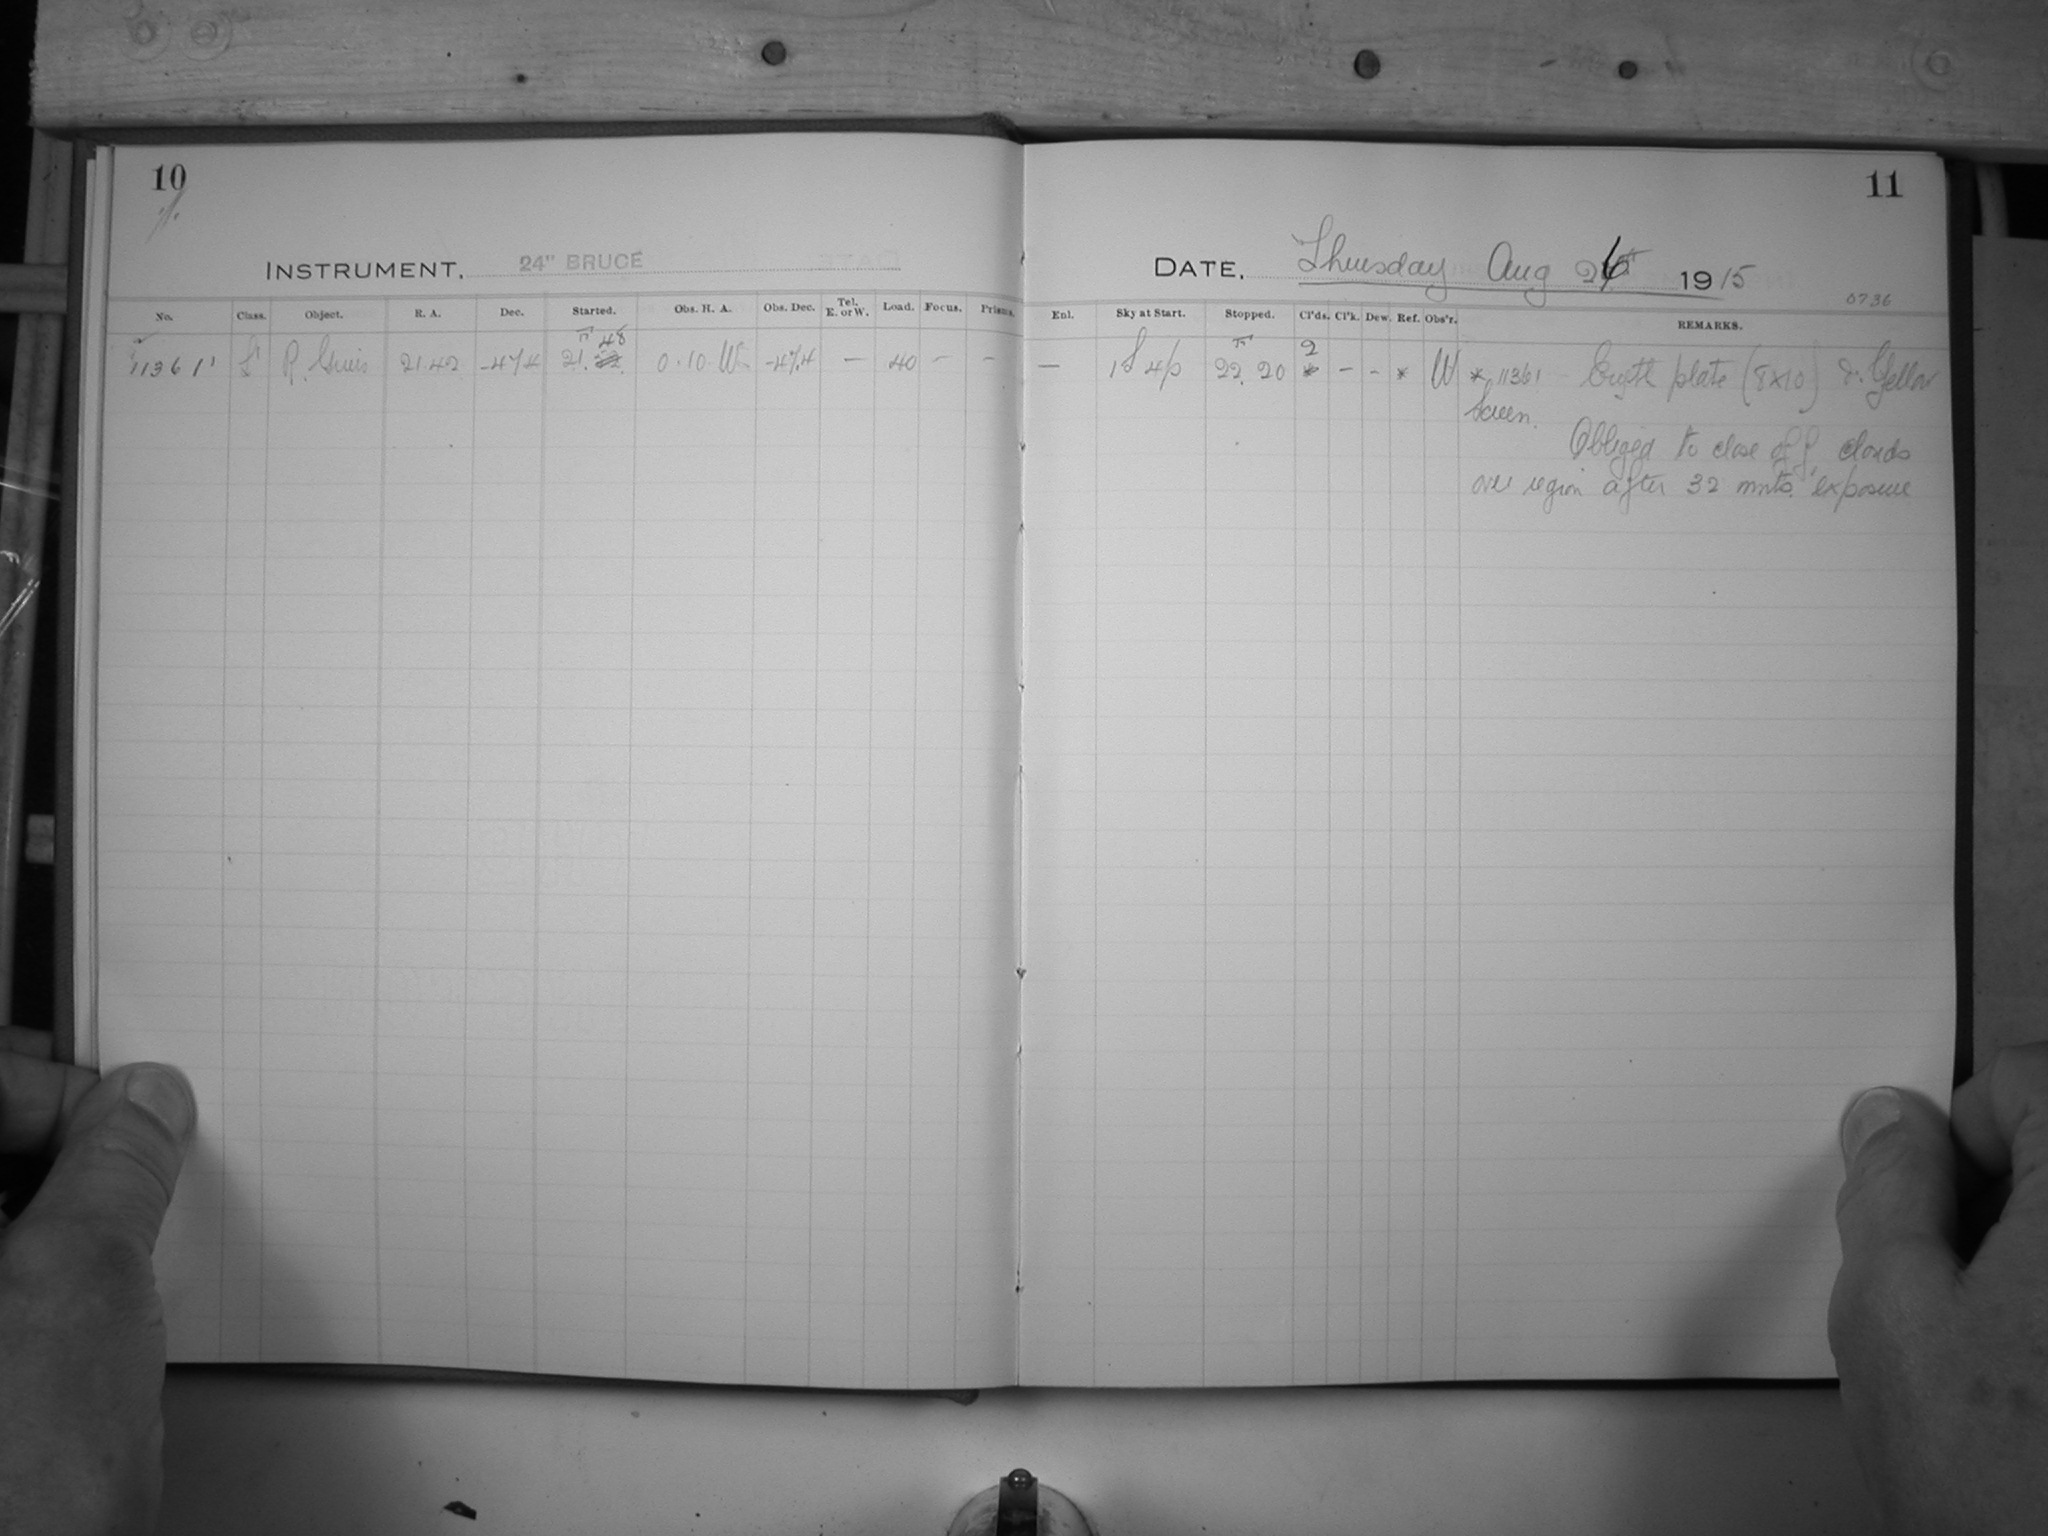 10
11
INSTRUMENT, 24" BRUCE
DATE, Thursday Aug 26th 1915
0736
No. Class. Object. R. A. Dec. Started. Obs. H. A. Obs. Dec. Tel. E. or W. Load. Focus. Prisms. Enl. Sky at Start. Stopped. Cl'ds. Cl'k. Dew. Ref. Obs'r. REMARKS.
11361 R. Gruis 21.42 -47.4 21. 48 0.10 W -47.4 — 40 — — — 22. 20 2 – – * W * 11361 Eryth plate (8x10) & Yellow
Screen.
Obliged to close off, clouds
over region after 32 mnts. exposure